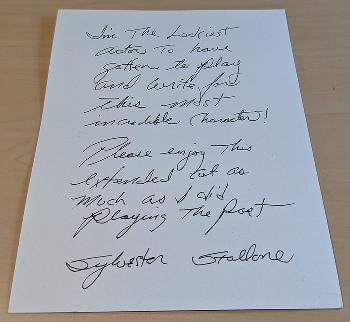 I'm The Luckiest
actor To have
gotten to play
and write for
this most
incredible Character!
Please enjoy This
extended cut as
much as I did
playing The part
Sylvester Stallone